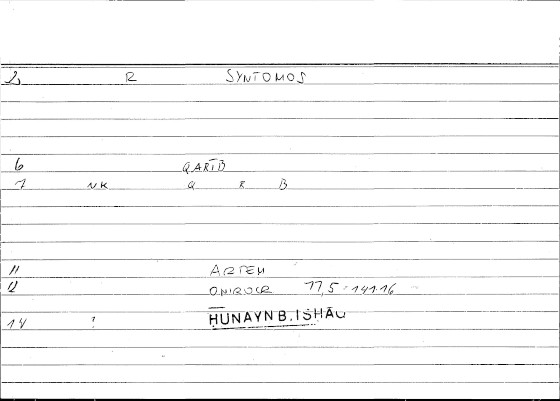 2 R SYNTOMOS
6 QARĪB
7 NK Q R B
11 ARTEM
12 ONIROCR 17,5 = 14116
14 ! ḤUNAYN B. ISḤĀQ